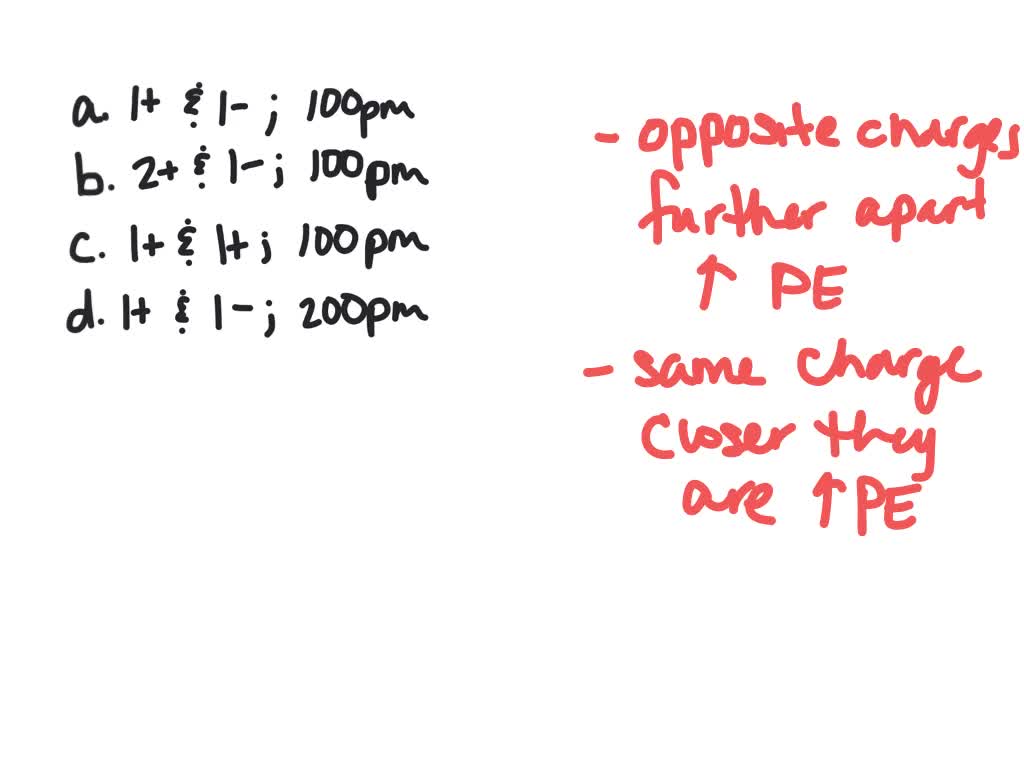 a. 1+ & 1- ; 100pm
b. 2+ & 1- ; 100pm
c. 1+ & 1+ ; 100pm
d. 1+ & 1- ; 200pm
- opposite charges
further apart
↑ PE
- same charge
closer they
are ↑ PE